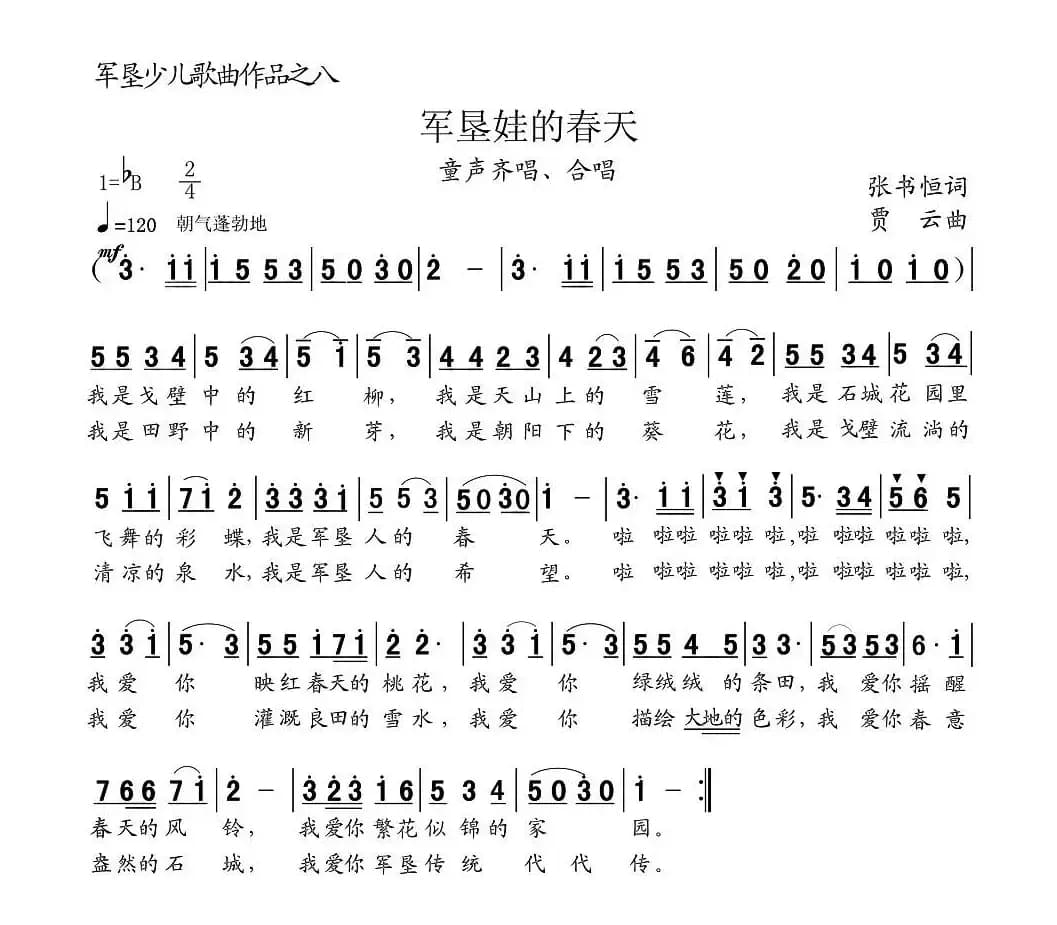 军垦少儿歌曲作品之八
军垦娃的春天
童声齐唱、合唱
1=♭B 2/4
张书恒词
♩=120 朝气蓬勃地
贾 云曲
mf
( 3· i i | i 5 5 3 | 5 0 3 0 | 2 － | 3· i i | i 5 5 3 | 5 0 2 0 | i 0 i 0 ) |
5 5 3 4 | 5 3 4 | 5 i | 5 3 | 4 4 2 3 | 4 2 3 | 4 6 | 4 2 | 5 5 3 4 | 5 3 4 |
我是戈壁 中 的 红 柳， 我 是天山 上 的 雪 莲， 我是 石城 花 园里
我是田野 中 的 新 芽， 我 是朝阳 下 的 葵 花， 我是 戈壁 流 淌的
5 i i | 7 i 2 | 3 3 3 i | 5 5 3 | 5 0 3 0 | i － | 3· i i | 3 i 3 | 5· 3 4 | 5 6 5 |
飞舞的 彩 蝶，我是军垦 人 的 春 天。 啦 啦啦 啦啦 啦，啦 啦啦 啦啦 啦，
清凉的 泉 水，我是军垦 人 的 希 望。 啦 啦啦 啦啦 啦，啦 啦啦 啦啦 啦，
3 3 i | 5· 3 | 5 5 i 7 i | 2 2· | 3 3 i | 5· 3 | 5 5 4 5 | 3 3· | 5 3 5 3 | 6· i |
我 爱 你 映红春天的 桃花，我 爱 你 绿绒绒 的 条田，我 爱你 摇 醒
我 爱 你 灌溉良田的 雪水，我 爱 你 描绘 大地的 色彩，我 爱你 春 意
7 6 6 7 i | 2 － | 3 2 3 i 6 | 5 3 4 | 5 0 3 0 | i － :‖
春天的 风 铃， 我爱你 繁花 似 锦 的 家 园。
盎然的 石 城， 我爱你 军垦 传 统 代 代 传。